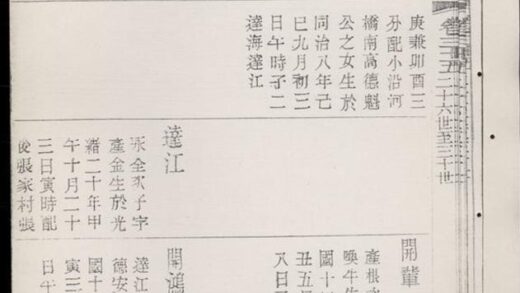 卷三十五二十六世至三十世
庚兼卯酉三
分配小沿河
橋南高德魁
公之女生於
同治八年己
巳九月初三
日午時子二
達海達江
達江
永全次子字
產金生於光
緒二十年甲
午十月二十
三日寅時配
後張家村張
開輩
產根
喚牛生
國十
丑五
八日
開鴻
達江
德安
國十
寅三
日午